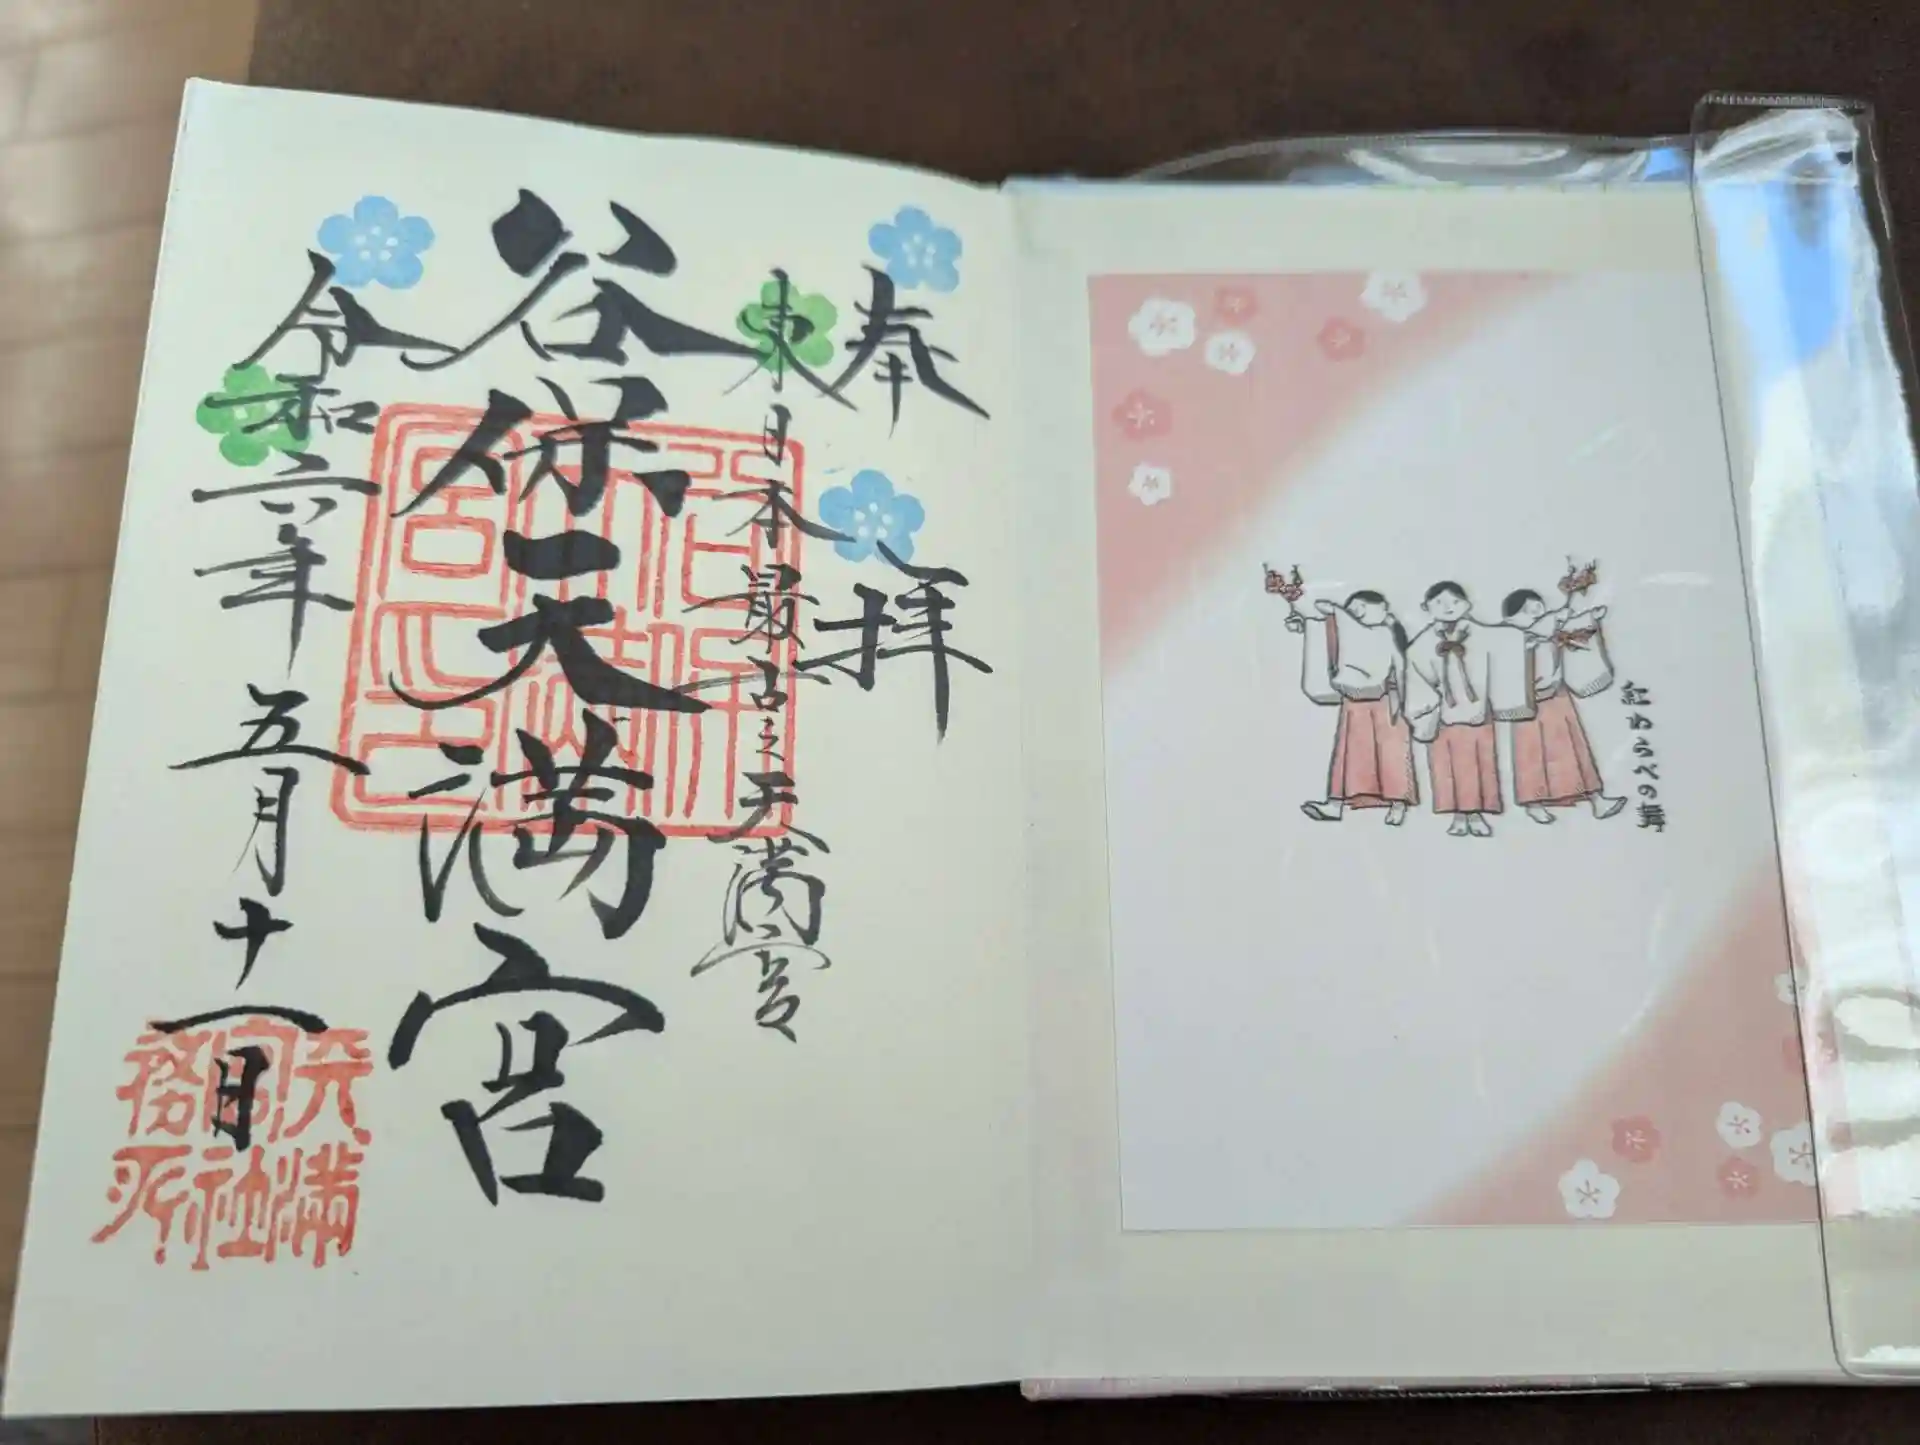 紅わらべの舞
奉拝
東日本最古之天満宮
谷保天満宮
令和六年五月十一日
天満
宮社
務所